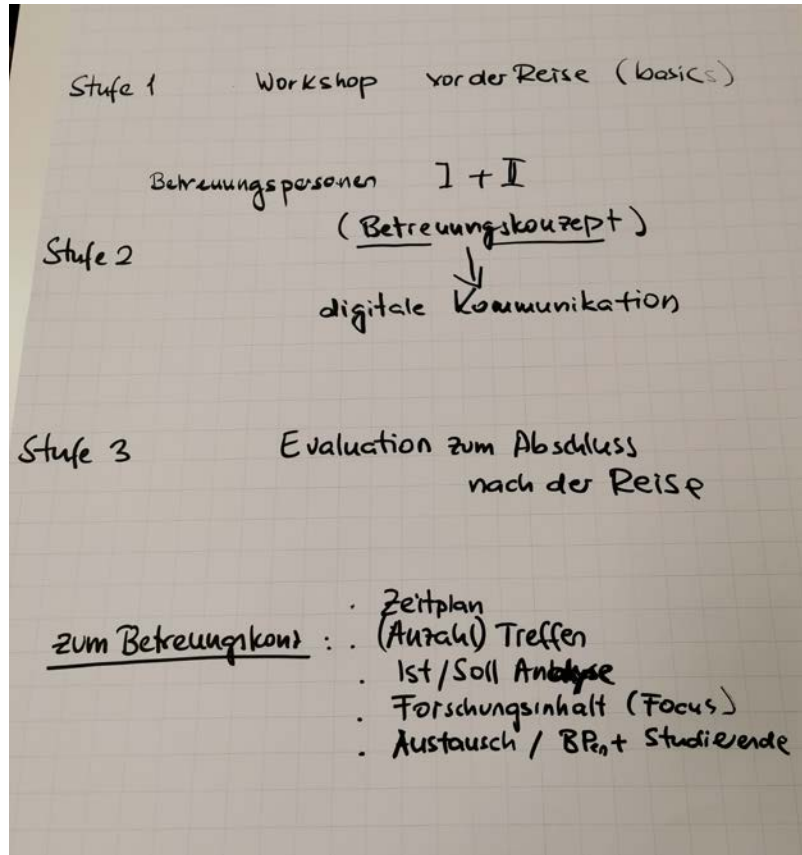 Stufe 1 Workshop vor der Reise (basics)
Betreuungspersonen I + II
(Betreuungskonzept)
Stufe 2
digitale Kommunikation
Stufe 3 Evaluation zum Abschluss
nach der Reise
. Zeitplan
zum Betreuungskonz : . (Anzahl) Treffen
. Ist/Soll Analyse
. Forschungsinhalt (Focus)
. Austausch / BPen + Studierende